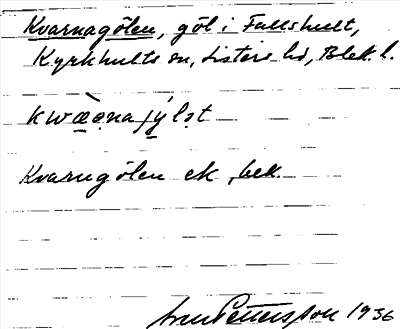 Kvarnagölen, göl i Fallshult,
Kyrkhults sn, Listers hd, Blek. l.
kwæ̀ṇnajýlət
Kvarngölen ek, bek.
Sven Pettersson 1936